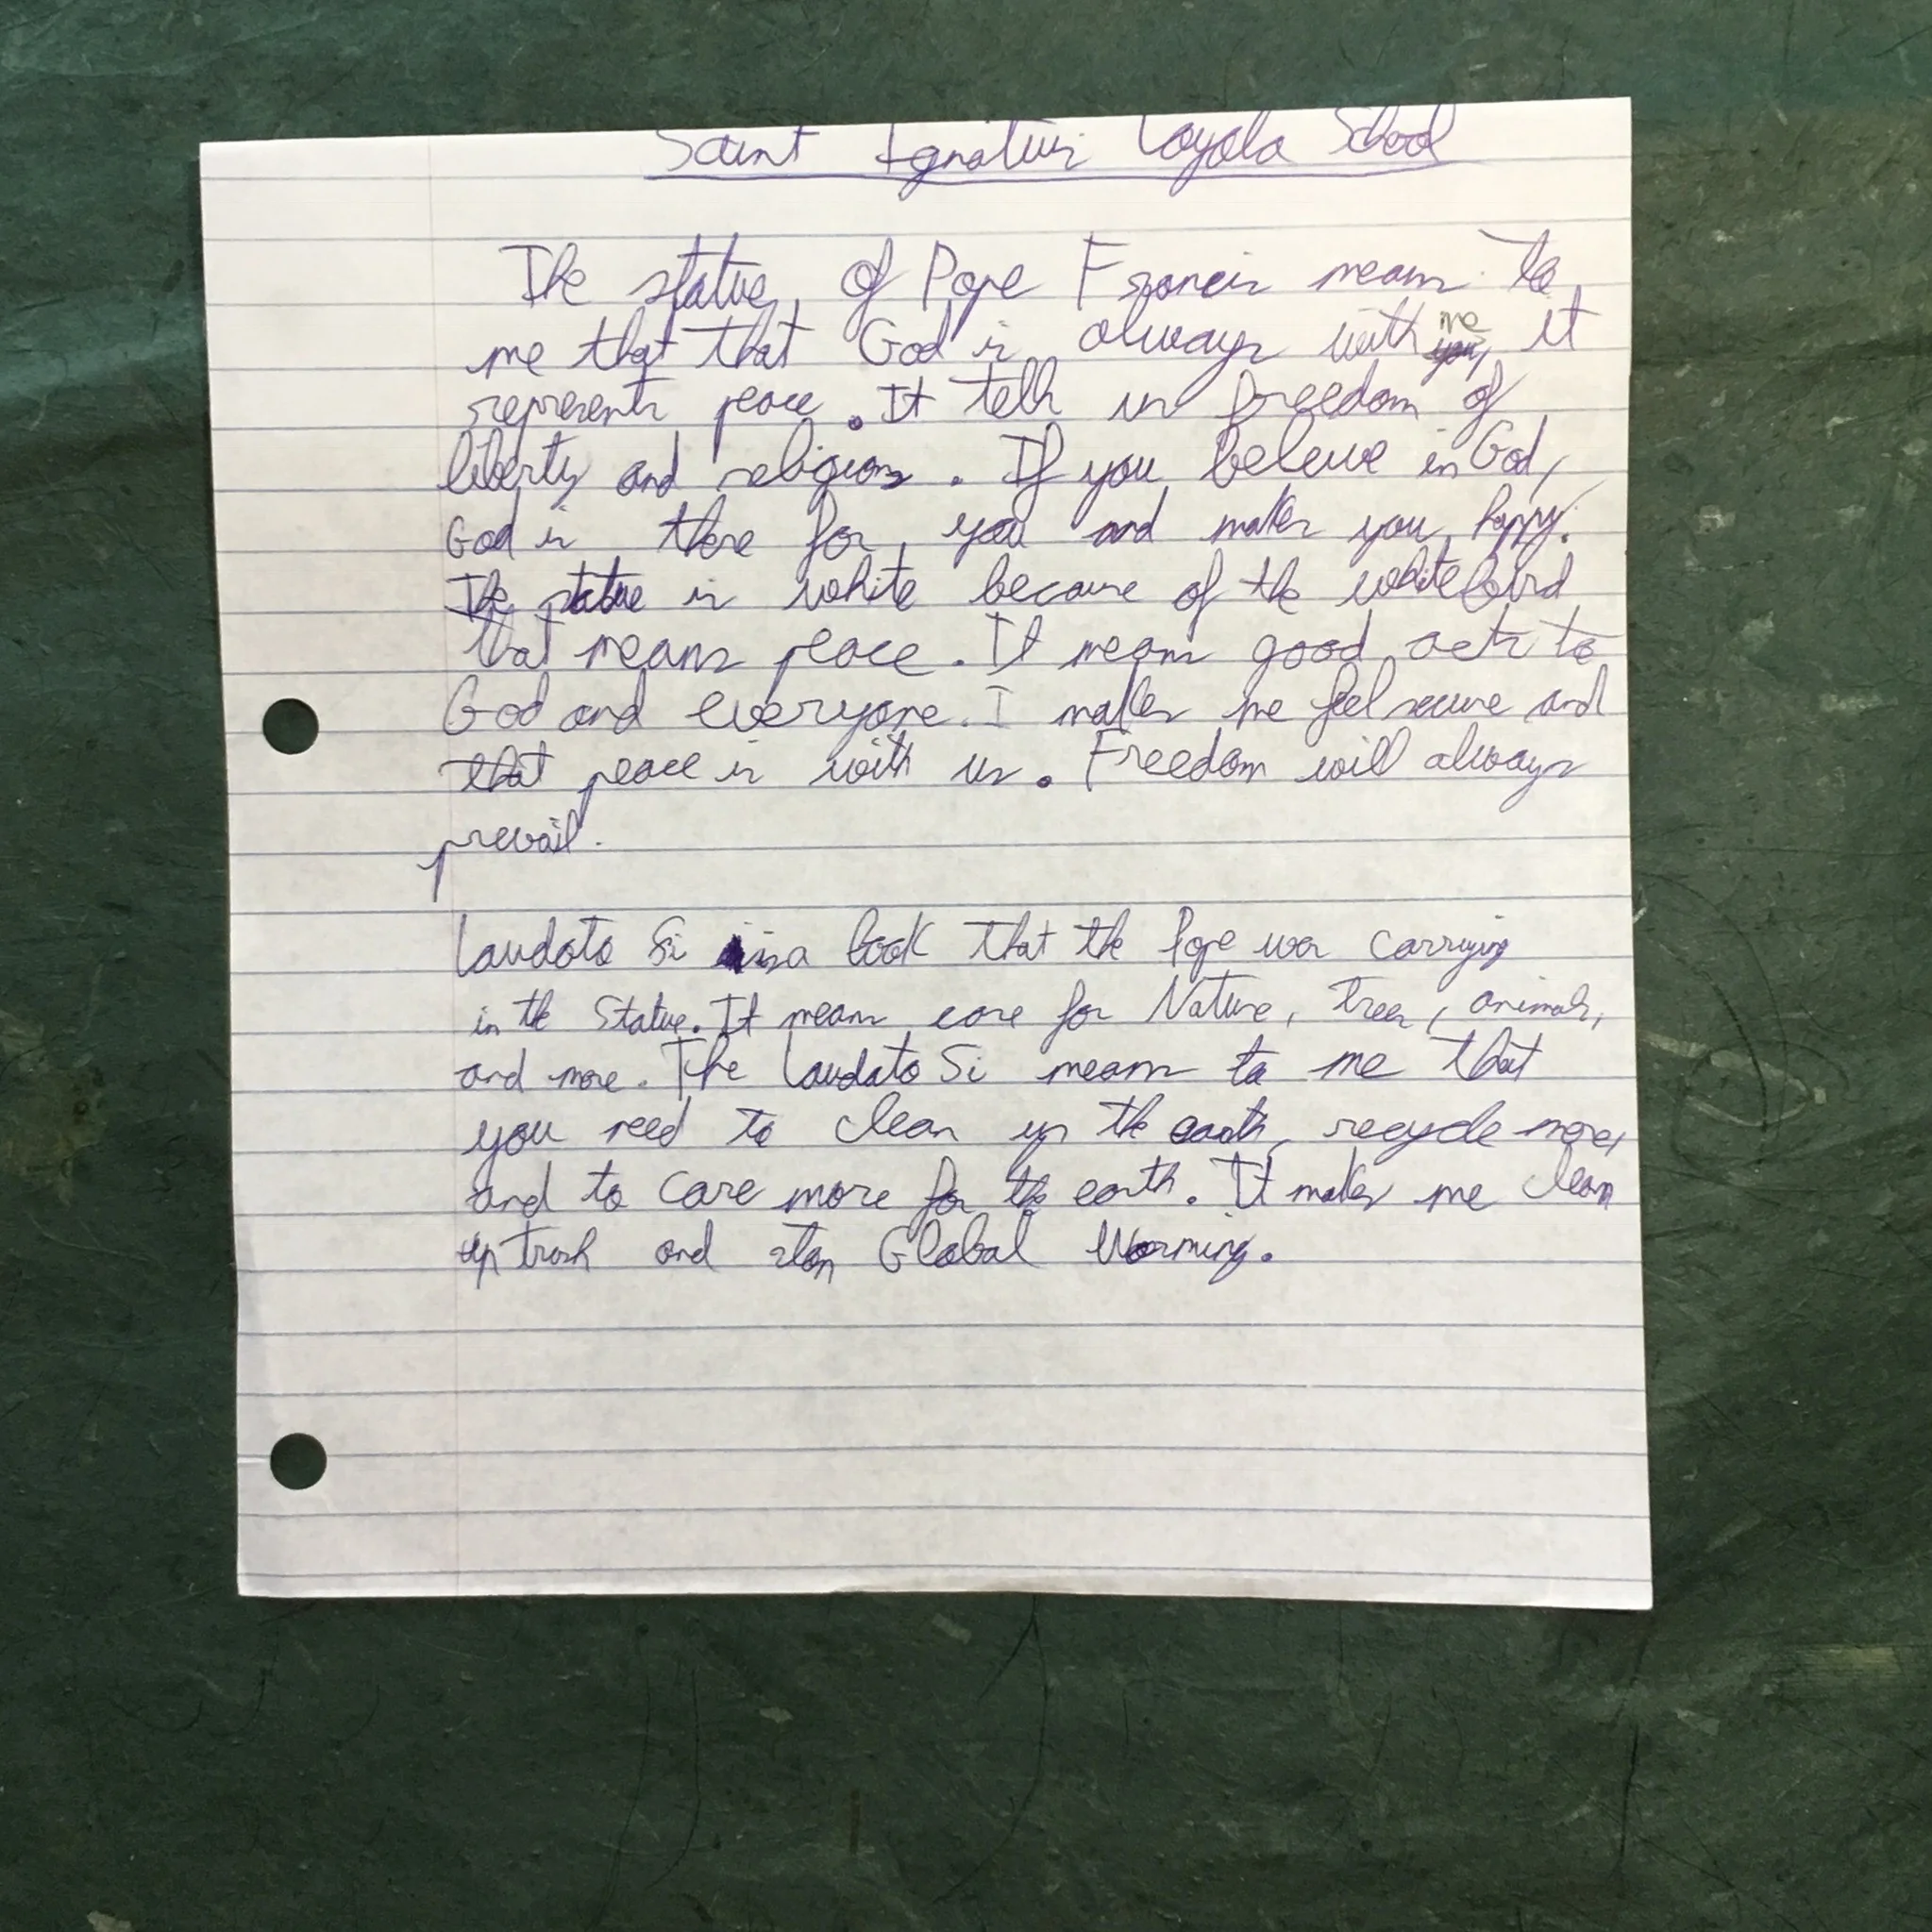 Saint Ignatius Loyola School
The statue of Pope Francis means to
me that that God is always with me it
represents peace. It tells us freedom of
liberty and religions. If you beleive in God,
God is there for you and makes you happy.
The statue is white because of the white bird
that means peace. It means good acts to
God and everyone. I makes me feel secure and
that peace is with us. Freedom will always
prevail.
Laudato Si is a book that the Pope was carrying
in the Statue. It means care for Nature, trees, animals,
and more. The Laudato Si means to me that
you need to clean up the earth, recycle more,
and to care more for the earth. It makes me clean
up trash and stop Global Warming.